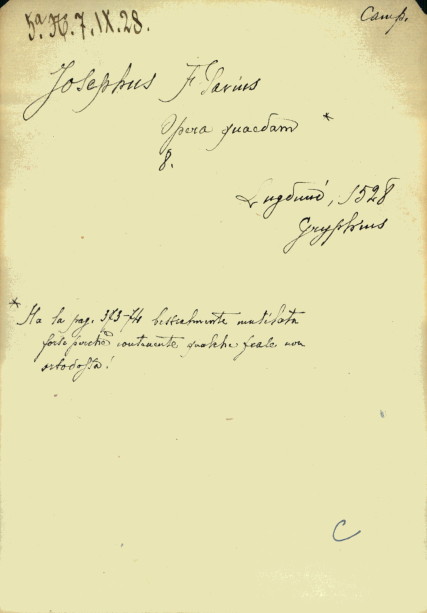 5.a H. 7. IX. 28.
Camp.
Josephus Flavius
Opera quaedam *
8.
Lugduni, 1528
Gryphius
* Ha la pag. 373-74 mutilata
forse perchè contenente qualche frase non
ortodossa!
C